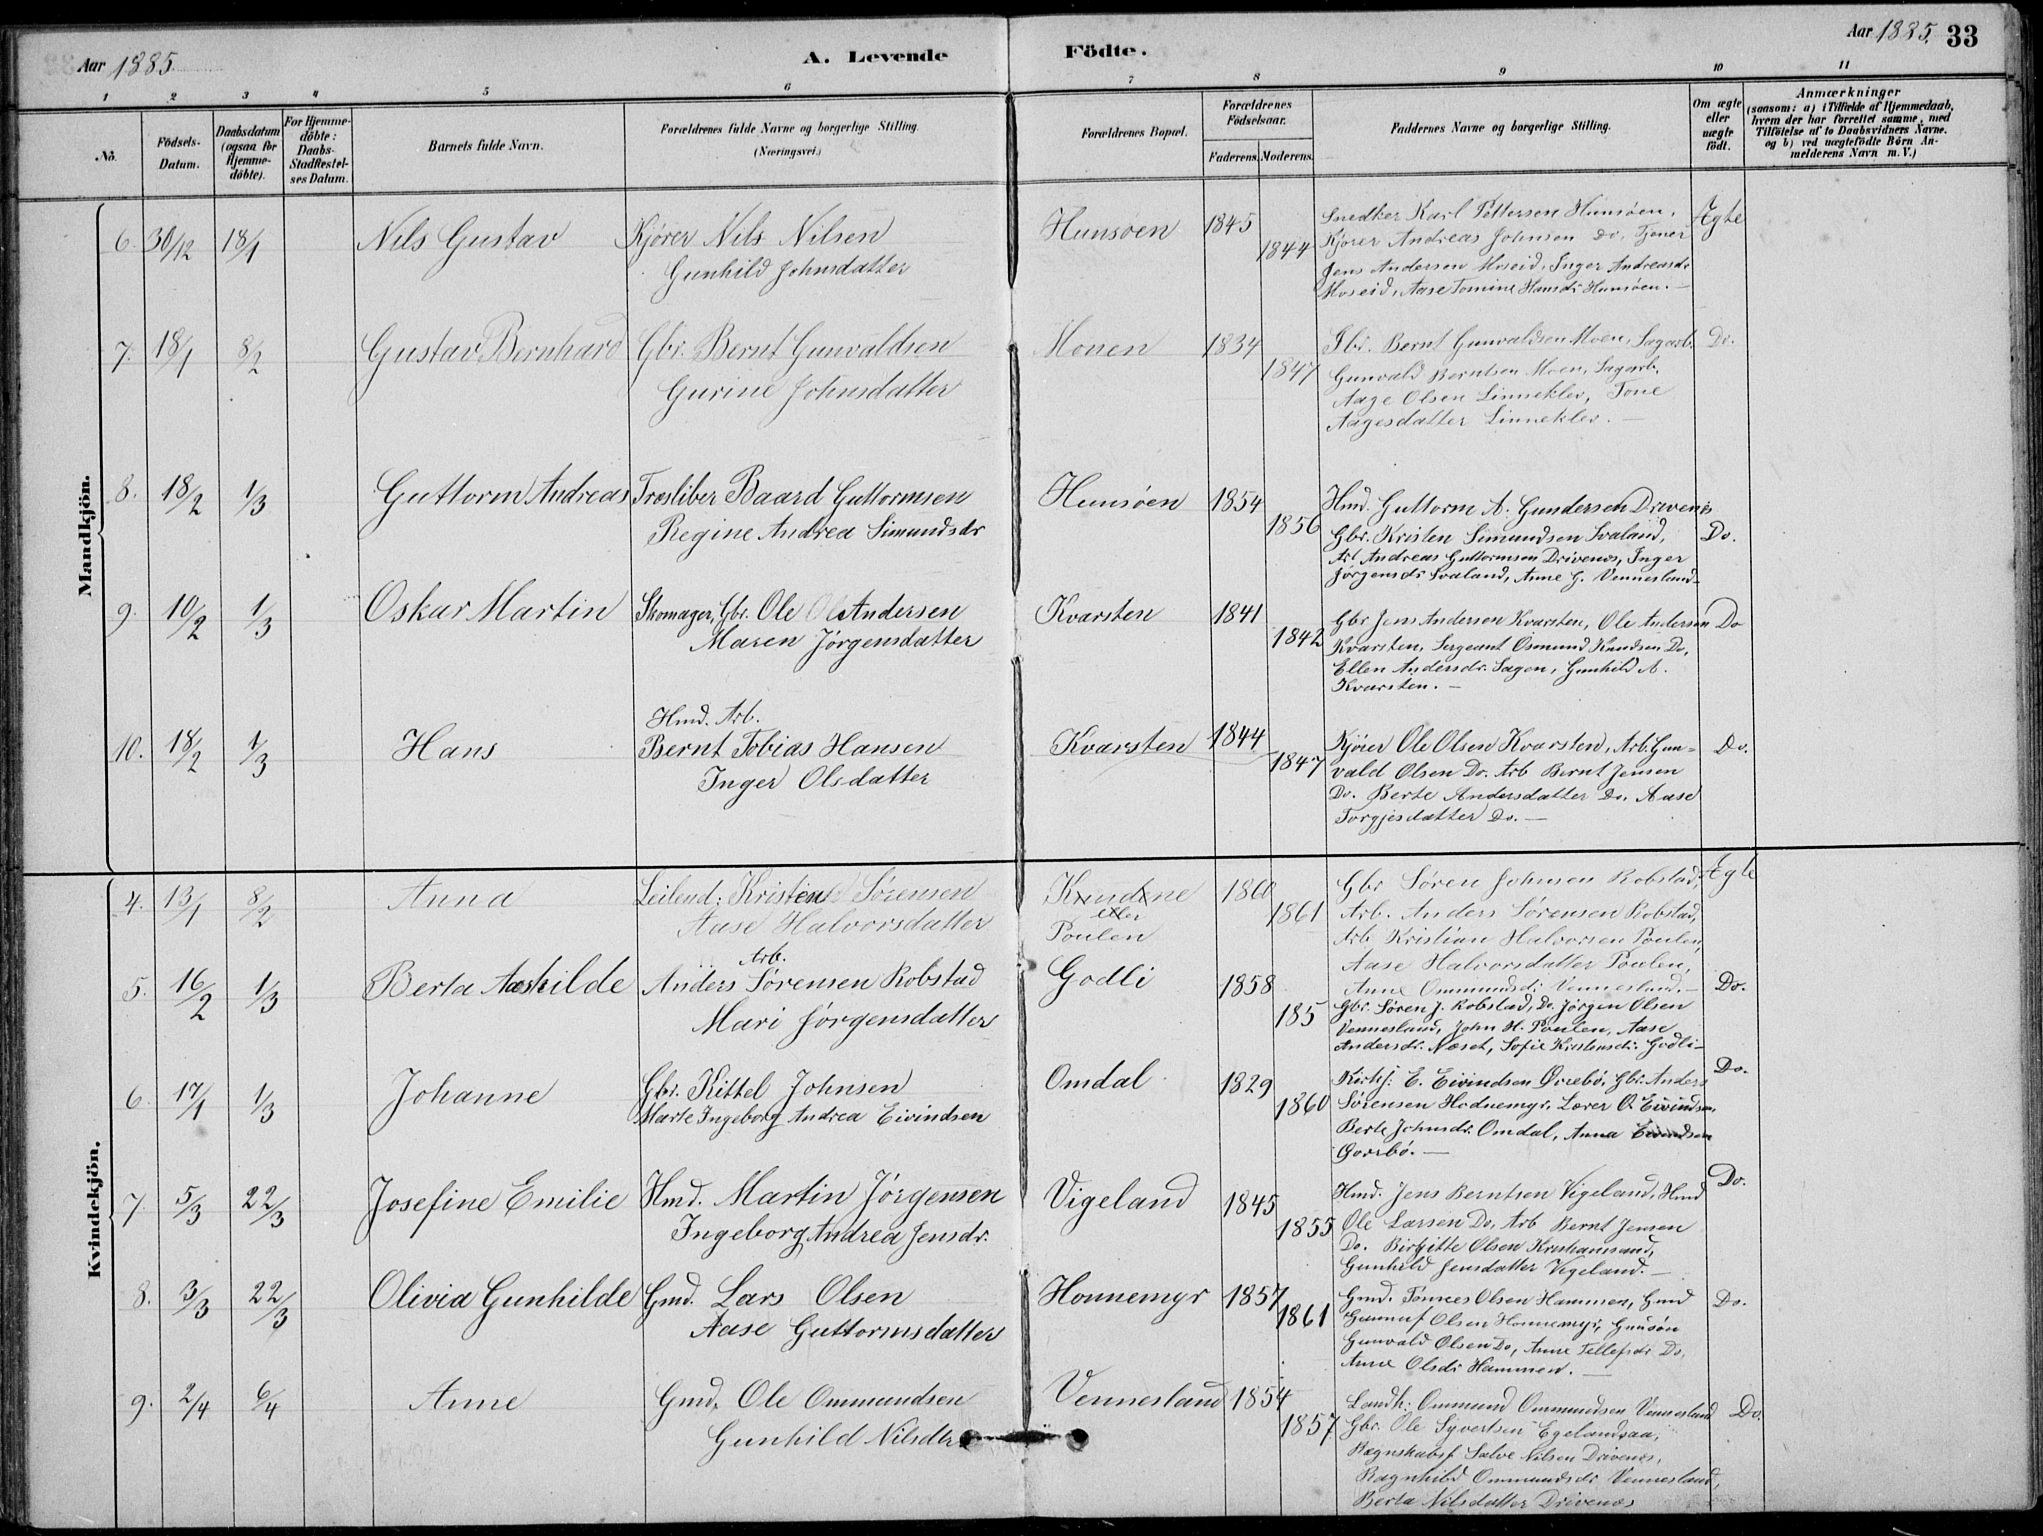 Aar 1885.
A. Levende
Födte.
Aar 1885. 33
1 2 3 4 5 6 7 8 9 10 11
No.
Födsels-Datum.
Daabsdatum (ogsaa for Hjemme-döbte).
For Hjemme-döbte: Daabs-Stadfæstel-ses Datum.
Barnets fulde Navn.
Forældrenes fulde Navne og borgerlige Stilling. (Næringsvei.)
Forældrenes Bopæl.
Forældrenes Födselsaar.
Faderens. Moderens.
Faddernes Navne og borgerlige Stilling.
Om ægte eller uægte födt.
Anmærkninger
(saasom: a) i Tilfælde af Hjemmedaab, hvem der har forrettet samme, med Tilföielse af to Daabsvidners Navne. og b) ved uægtefödte Börn An-melderens Navn m. V.)
Mandkjön.
6. 30/12 18/1 Nils Gustav Kjører Nils Nilsen Hunsøen 1845 Snedker Karl Pettersen Hunsøen, Ægte
Gunhild Johnsdatter 1844 Kjører Andreas Johnsen Do. Tjener
Jens Andersen Moseid, Inger Andreasdr
Moseid, Aase Tomine Hansdr Hunsøen. —
7. 18/1 8/2 Gustav Bernhard Gbr. Bernt Gunvaldsen Monen 1834 Gbr. Bernt Gunvaldsen Moen, Sagarb. Do.
Gurine Johnsdatter 1847 Gunvald Berntsen Moen, Sagarb.
Aage Olsen Linneklev, Tone
Aagesdatter Linneklev. —
8. 18/2 1/3 Guttorm Andreas Træsliber Baard Guttormsen Hunsøen 1854 Hmd. Guttorm A. Gundersen Drivenes
Regine Andrea Simundsdr 1856 Gbr. Kristen Simundsen Svaland, Do.
Ar. Andreas Guttormsen Drivenes, Inger
Jørgensdr Svaland, Anne G. Vennesland
9. 10/2 1/3 Oskar Martin Skomager, Gbr. Ole Andersen Kvarsten 1841 Gbr Jens Andersen Kvarsten, Ole Andersen Do
Maren Jørgensdatter 1842 Kvarsten, Sergeant Osmund Knudsen Do,
Ellen Andersdr. Sagen, Gunhild A.
Kvarsten. —
10. 18/2 1/3 Hans Hmd. Arb.
Bernt Tobias Hansen Kvarsten 1844 Kjører Ole Olsen Kvarsten, Arb. Gun- Do.
Inger Olsdatter 1847 vald Olsen Do. Arb Bernt Jensen
Do. Berte Andersdatter Do. Aase
Torgjesdatter Do. —
Kvindekjön.
4. 13/1 8/2 Anna Leilend: Kristen Sørensen 1860 Gbr Søren Johnsen Robstad, Ægte
Aase Halvorsdatter eller Poulen 1861 Arb. Anders Sørensen Robstad,
Arb Kristian Halvorsen Poulen,
Aase Halvorsdatter Poulen,
Anne Ommundsdr Vennesland. —
5. 16/2 1/3 Berta Aashilde Arb.
Anders Sørensen Robstad Godli 1858 Gbr. Søren J. Robstad, Do. Jørgen Olsen Do.
Mari Jørgensdatter 185 Vennesland, John H. Poulen, Aase
Andersdr. Næset, Sofie Kristensdr. Godli —
6. 17/1 1/3 Johanne Gbr. Kittel Johnsen Omdal 1829 E. Eivindsen Övrebö, Gbr. Anders Do.
Marte Ingeborg Andrea Eivindsen 1860 Sørensen Hodnemyr, Lærer O. Eivindsen,
Berte Johnsdr. Omdal, Anna Eivindsen
Øvrebø. —
7. 5/3 22/3 Josefine Emilie Hmd. Martin Jørgensen Vigeland 1845 Hmd. Jens Berntsen Vigeland, Hmd Do.
Ingeborg Andrea Jensdr. 1855 Ole Larsen Do, Arb Bernt Jensen
Do. Birgitte Olsen Kristiansand,
Gunhild Jensdatter Vigeland. —
8. 3/3 22/3 Olivia Gunhilde Gmd. Lars Olsen Honnemyr 1857 Gmd. Tønnes Olsen Hammen, Gmd Do.
Aase Guttormsdatter 1861 Gunnuf Olsen Honnemyr, Gmdsøn
Gunvald Olsen Do, Anne Tellefsdr Do.
Anne Olsdr Hammen. —
9. 2/4 6/4 Anne Gmd. Ole Ommundsen Vennesland 1854 Landh: Ommund Ommundsen Vennesland Do.
Gunhild Nilsdtr 1857 Gbr. Ole Syvertsen Egelandsaa,
Rægnskabsf Salve Nilsen Drivenes,
Ragnhild Ommundsdr Vennesland,
Berta Nilsdatter Drivenes